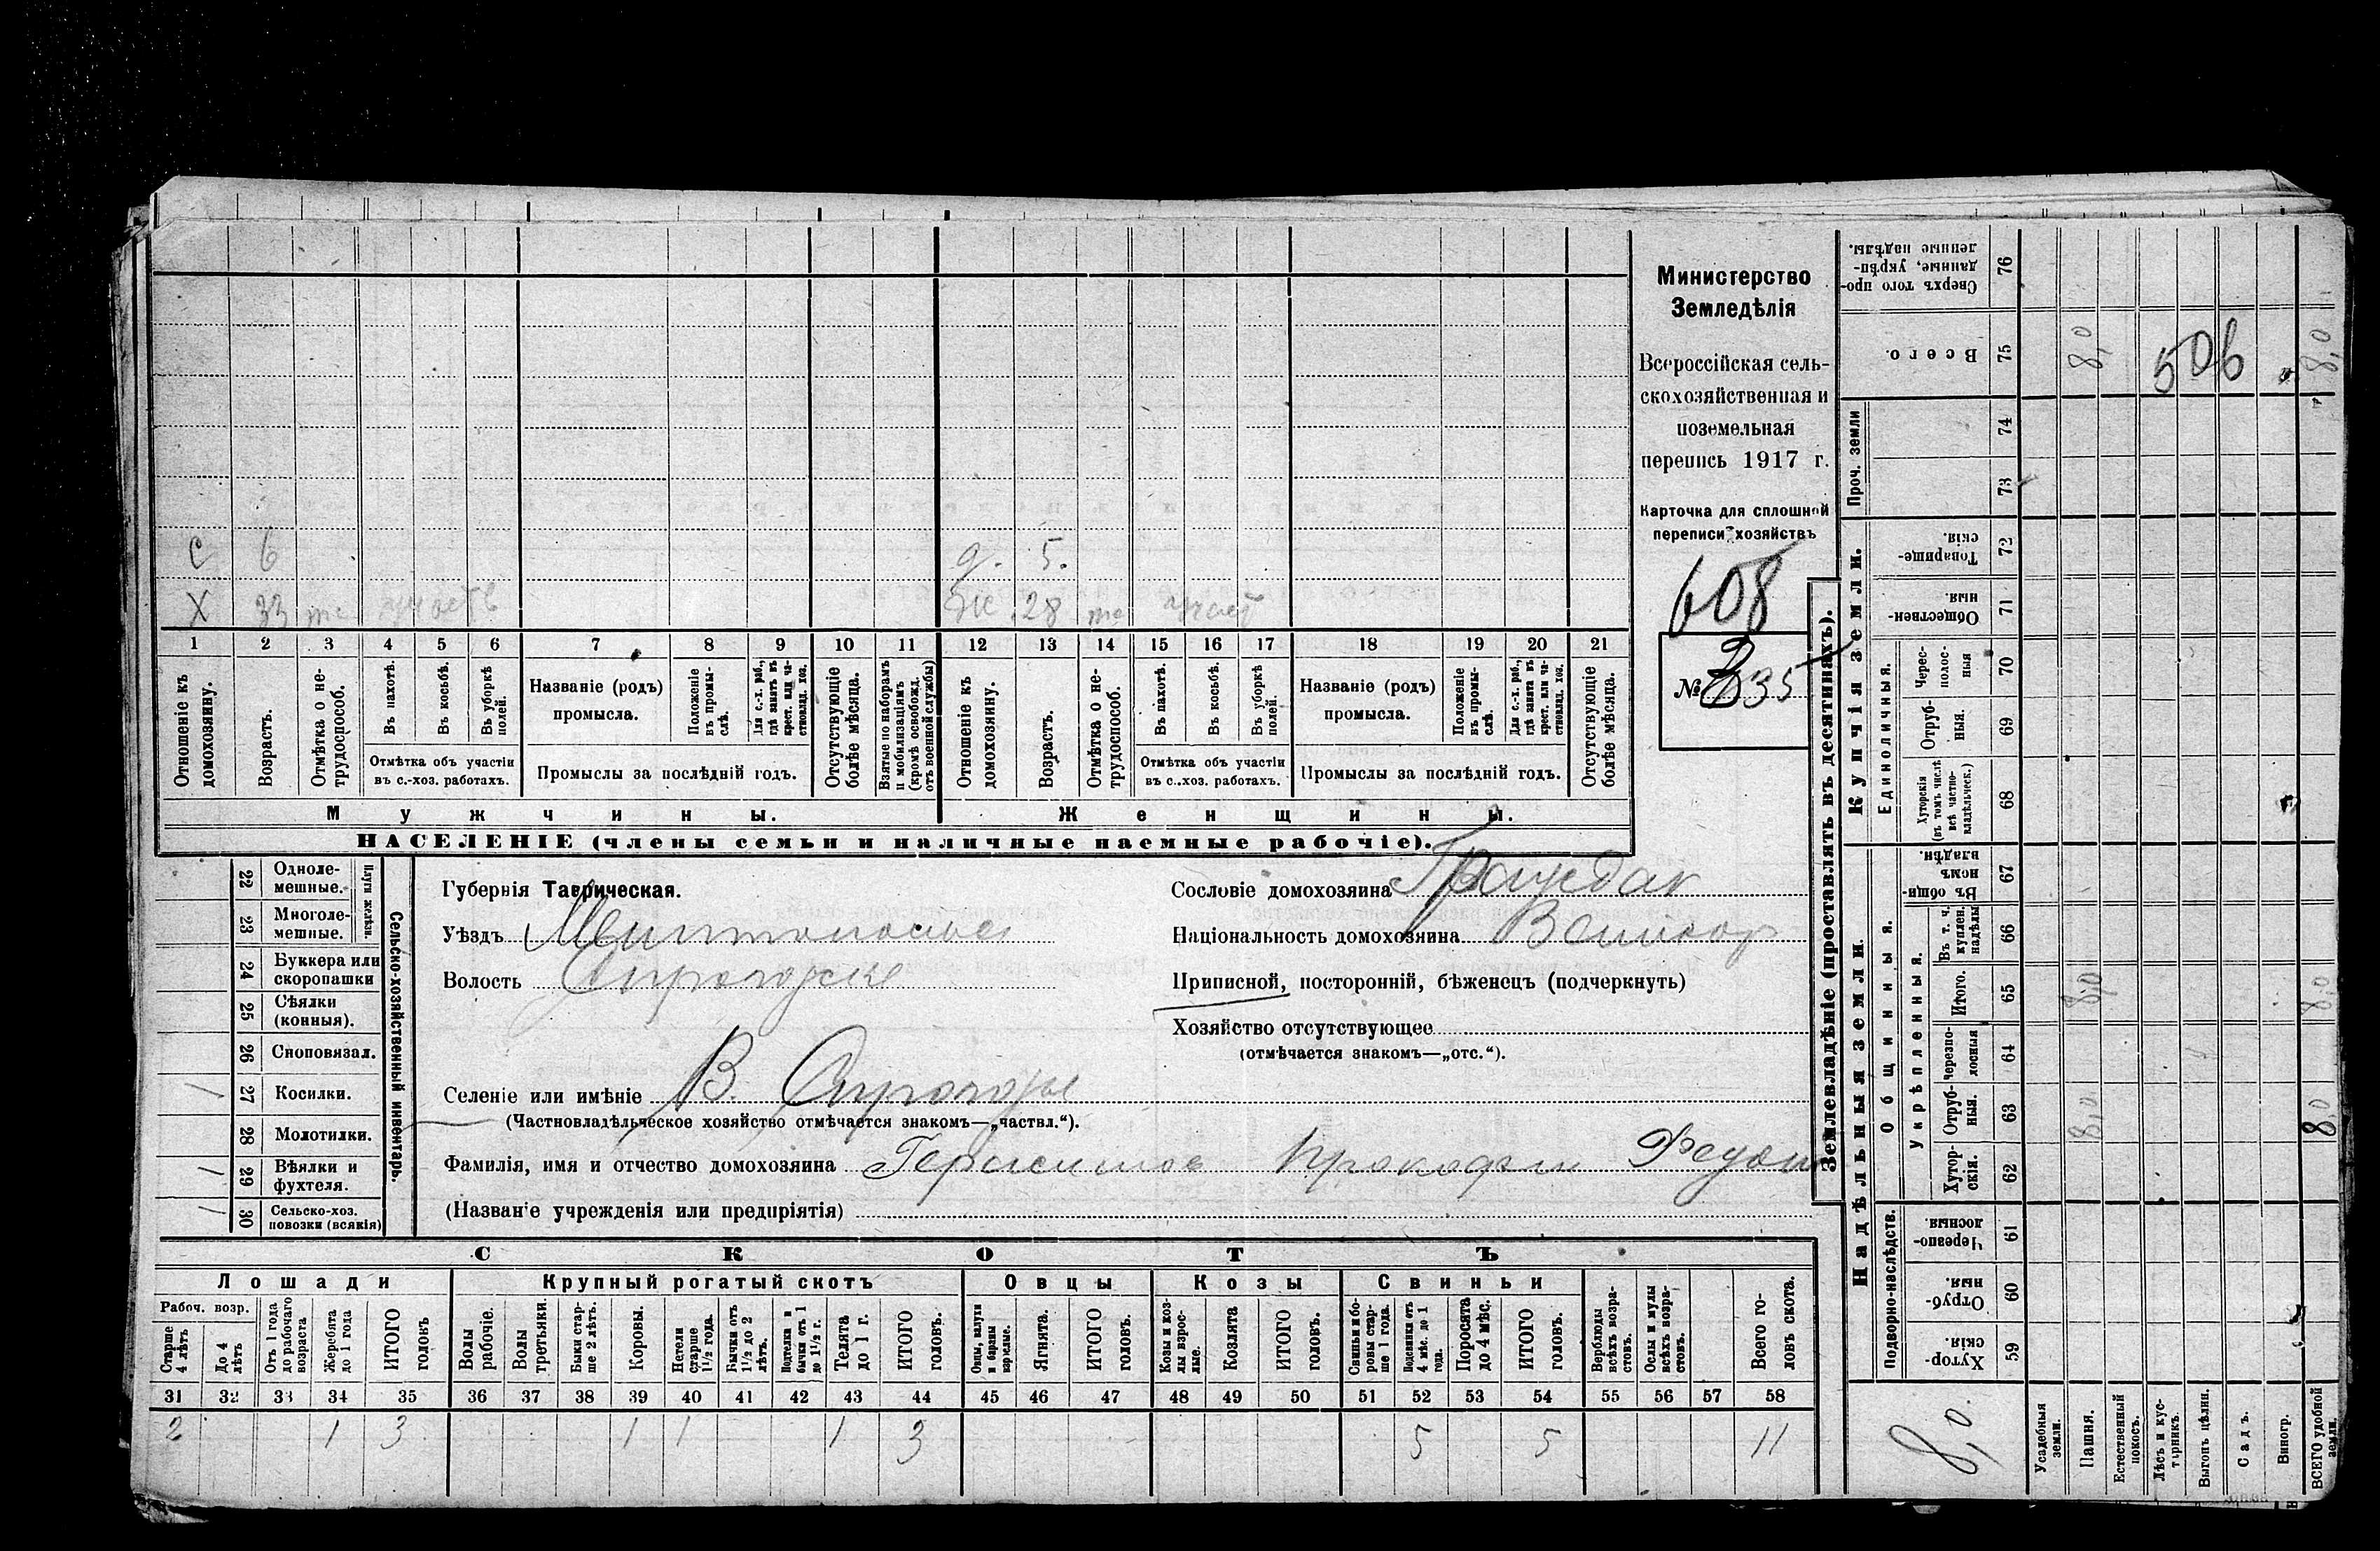 С 6 д. 5.
Х 33 Ж 28
1 2 3 4 5 6 7 8 9 10 11 12 13 14 15 16 17 18 19 20 21
Отношеніе къ домохозяину.
Возрастъ.
Отмѣтка о не-трудоспособ.
Въ пахотѣ.
Въ косьбѣ.
Въ уборкѣ полей.
Отмѣтка объ участіи
въ с.-хоз. работахъ.
Названіе (родъ)
промысла.
Положеніе въ промы-слѣ.
Для с.-х. раб., гдѣ занятъ въ крест. или ча-стновлад. хоз.
Промыслы за послѣдній годъ.
Отсутствующіе болѣе мѣсяца.
Взятые по наборамъ и мобилизаціямъ (кромѣ освобожд. отъ военной службы)
Отношеніе къ домохозяину.
Возрастъ.
Отмѣтка о не-трудоспособ.
Въ пахотѣ.
Въ косьбѣ.
Въ уборкѣ полей.
Отмѣтка объ участіи
въ с.-хоз. работахъ.
Названіе (родъ)
промысла.
Положеніе въ промы-слѣ.
Для с.-х. раб., гдѣ занятъ въ крест. или ча-стновлад. хоз.
Промыслы за послѣдній годъ.
Отсутствующіе болѣе мѣсяца.
Мужчины. Женщины.
НАСЕЛЕНІЕ (члены семьи и наличные наемные рабочіе).
Министерство
Земледѣлія
Всероссійская сель-
скохозяйственная и
поземельная
перепись 1917 г.
Карточка для сплошной
переписи хозяйствъ
608
№ 35
Сельско-хозяйственный инвентарь.
Плуги желѣзн.
22 Одноле-мешные.
23 Многоле-мешные.
24 Буккера или скоропашки
25 Сѣялки (конныя).
26 Сноповязал.
1 27 Косилки.
28 Молотилки.
1 29 Вѣялки и фухтеля.
1 30 Сельско-хоз. повозки (всякія)
Губернія Таврическая.
Уѣздъ
Волость
Селеніе или имѣніе В. Сирогозы
(Частновладѣльческое хозяйство отмѣчается знакомъ—„частвл.“).
Фамилія, имя и отчество домохозяина Герасимов Прокофій
(Названіе учрежденія или предпріятія)
Сословіе домохозяина Граждан
Національность домохозяина Великор
Приписной, посторонній, бѣженецъ (подчеркнуть)
Хозяйство отсутствующее
(отмѣчается знакомъ—„отс.“).
СКОТЪ
Лошади Крупный рогатый скотъ Овцы Козы Свиньи
Рабоч. возр.
Старше 4 лѣтъ
До 4 лѣтъ
Отъ 1 года до рабочаго возраста
Жеребята до 1 года
ИТОГО головъ
Волы рабочіе.
Волы третьяки.
Быки стар-ше 2 лѣтъ.
Коровы.
Нетели старше 1½ года.
Бычки отъ 1½ до 2 лѣтъ.
Подтелки и бычки отъ 1 до 1½ г.
Телята до 1 г.
ИТОГО головъ.
Овцы, валухи и бараны взрослые.
Ягнята.
ИТОГО головъ.
Козы и коз-лы взрос-лые.
Козлята
ИТОГО головъ.
Свиньи и бо-ровы стар-ше 1 года.
Подсвинки отъ 4 мѣс. до 1 года.
Поросята до 4 мѣс.
ИТОГО головъ.
Верблюды всѣхъ возра-стовъ.
Ослы и мулы всѣхъ возра-стовъ.
Всего го-ловъ скота.
31 32 33 34 35 36 37 38 39 40 41 42 43 44 45 46 47 48 49 50 51 52 53 54 55 56 57 58
2 1 3 1 1 1 3 5 5 11
Землевладѣніе (проставлять въ десятинахъ).
Надѣльныя земли.
Подворно-наслѣдств.
Хутор-скія. 59
Отруб-ныя. 60
Черезпо-лосныя. 61
Общинныя.
Укрѣпленныя.
Хутор-скія. 62
Отруб-ныя. 63 8,0 8,0
Черезпо-лосныя 64
Итого. 65 8,0 8,0
Въ т. ч. куплен. надѣлы 66
Въ общин-номъ владѣн. 67
Купчія земли.
Единоличныя.
Хуторскія (въ томъ числѣ всѣ частно-владѣльческ.) 68
Отруб-ныя. 69
Черес-полос-ныя 70
Обществен-ныя. 71
Товарище-скія. 72
Проч. земли
73
74
Всего. 75 8,0 506 8,0
Сверхъ того про-данные, укрѣп-ленные надѣлы. 76
8,0.
Усадебныя земли.
Пашня.
Естественный покосъ.
Лѣсъ и кус-тарникъ.
Выгонъ цѣлин.
Садъ.
Виногр.
ВСЕГО удобной земли.